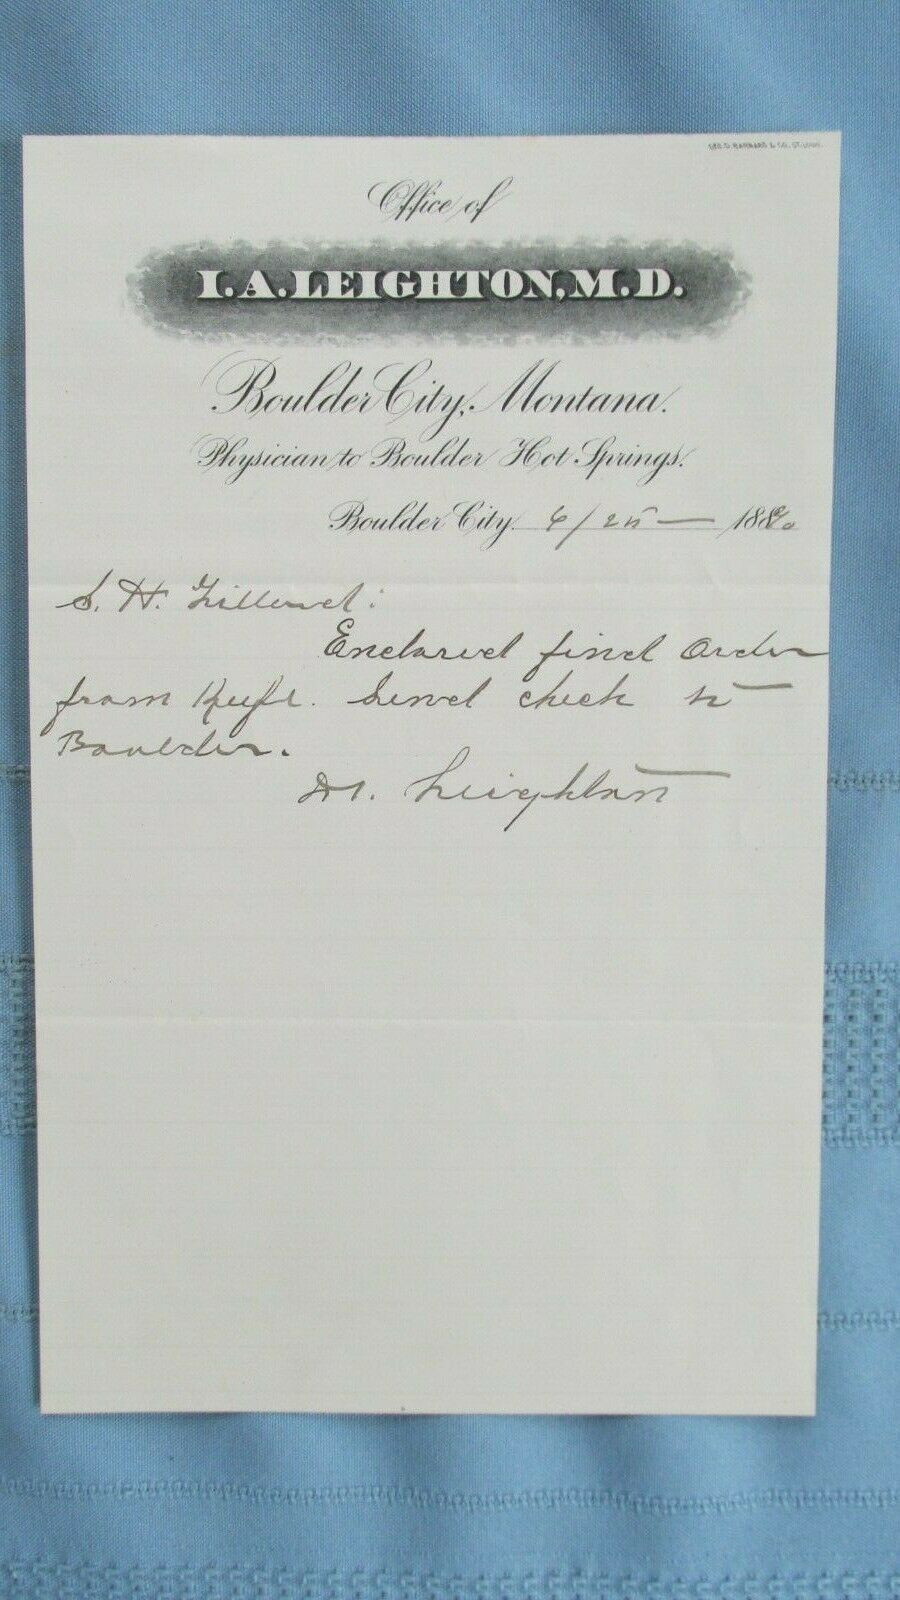 GEO. D. BARNARD & CO. ST. LOUIS.
Office of
I. A. LEIGHTON, M. D.
Boulder City, Montana.
Physician to Boulder Hot Springs.
Boulder City 6/25 — 1890
S. H.
Enclosed find Order
from Keefe. Send check to
Boulder.
Dr. Leighton